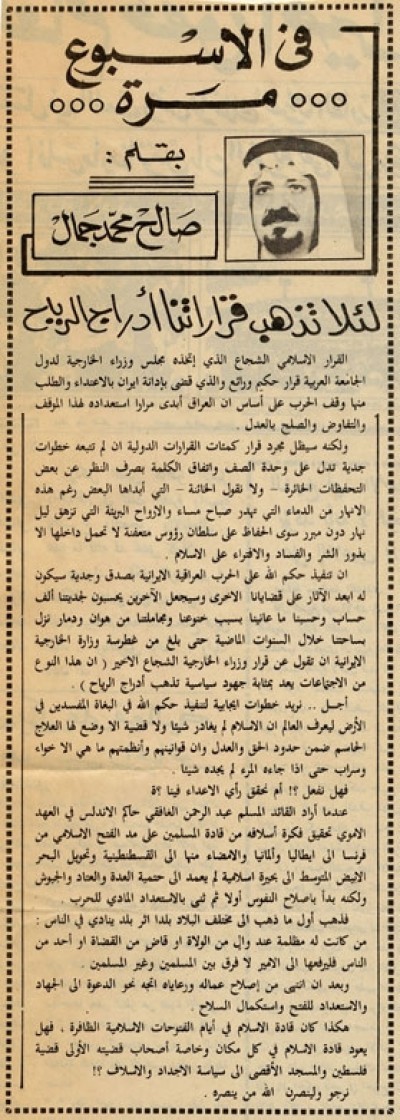 فى الاسبوع
... مرة ...
بقلم :
صالح محمد جمال
لئلا تذهب قراراتنا أدراج الرياح
القرار الاسلامي الشجاع الذي إتخذه مجلس وزراء الخارجية لدول
الجامعة العربية قرار حكيم ورائع والذي قضى بإدانة ايران بالاعتداء والطلب
منها وقف الحرب على أساس ان العراق أبدى مرارا استعداده لهذا الموقف
والتفاوض والصلح بالعدل .
ولكنه سيظل مجرد قرار كمئات القرارات الدولية ان لم تتبعه خطوات
جدية تدل على وحدة الصف واتفاق الكلمة بصرف النظر عن بعض
التحفظات الخائرة – ولا نقول الخائنة – التي أبداها البعض رغم هذه
الانهار من الدماء التي تهدر صباح مساء والارواح البريئة التي تزهق ليل
نهار دون مبرر سوى الحفاظ على سلطان رؤوس متعفنة لا تحمل داخلها الا
بذور الشر والفساد والافتراء على الاسلام .
ان تنفيذ حكم الله على الحرب العراقية الايرانية بصدق وجدية سيكون
له ابعد الآثار على قضايانا الاخرى وسيجعل الآخرين يحسبون لجديتنا ألف
حساب وحسبنا ما عانينا بسبب خنوعنا ومجاملتنا من هوان ودمار نزل
بساحتنا خلال السنوات الماضية حتى بلغ من غطرسة وزارة الخارجية
الايرانية ان تقول عن قرار وزراء الخارجية الشجاع الاخير ( ان هذا النوع
من الاجتماعات يعد بمثابة جهود سياسية تذهب أدراج الرياح ) .
أجل .. نريد خطوات ايجابية لتنفيذ حكم الله في البغاة المفسدين في
الأرض ليعرف العالم ان الاسلام لم يغادر شيئا ولا قضية الا وضع لها العلاج
الحاسم ضمن حدود الحق والعدل وان قوانينهم وأنظمتهم ما هي الا خواء
وسراب حتى اذا جاءه المرء لم يجده شيئا .
فهل نفعل ؟! أم نحقق رأي الاعداء فينا ؟
عندما أراد القائد المسلم عبد الرحمن الغافقي حاكم الاندلس في العهد
الاموي تحقيق فكرة أسلافه من قادة المسلمين على مد الفتح الاسلامي من
فرنسا الى ايطاليا وألمانيا والامضاء منها الى القسطنطينية وتحويل البحر
الابيض المتوسط الى بحيرة اسلامية لم يعمد الى حتمية العدة والعتاد والجيوش
ولكنه بدأ باصلاح النفوس أولا ثم ثنى بالاستعداد المادي للحرب .
فذهب أول ما ذهب الى مختلف البلاد بلدا اثر بلد ينادي في الناس :
من كانت له مظلمة عند وال من الولاة او قاض من القضاة او أحد من
الناس فليرفعها الى الامير لا فرق بين المسلمين وغير المسلمين .
وبعد ان انتهى من إصلاح عماله ورعاياه اتجه نحو الدعوة الى الجهاد
والاستعداد للفتح واستكمال السلاح .
هكذا كان قادة الاسلام في أيام الفتوحات الاسلامية الظافرة ، فهل
يعود قادة الاسلام في كل مكان وخاصة أصحاب قضيته الأولى قضية
فلسطين والمسجد الأقصى الى سياسة الاجداد والاسلاف ؟!
نرجو ولينصرن الله من ينصره .